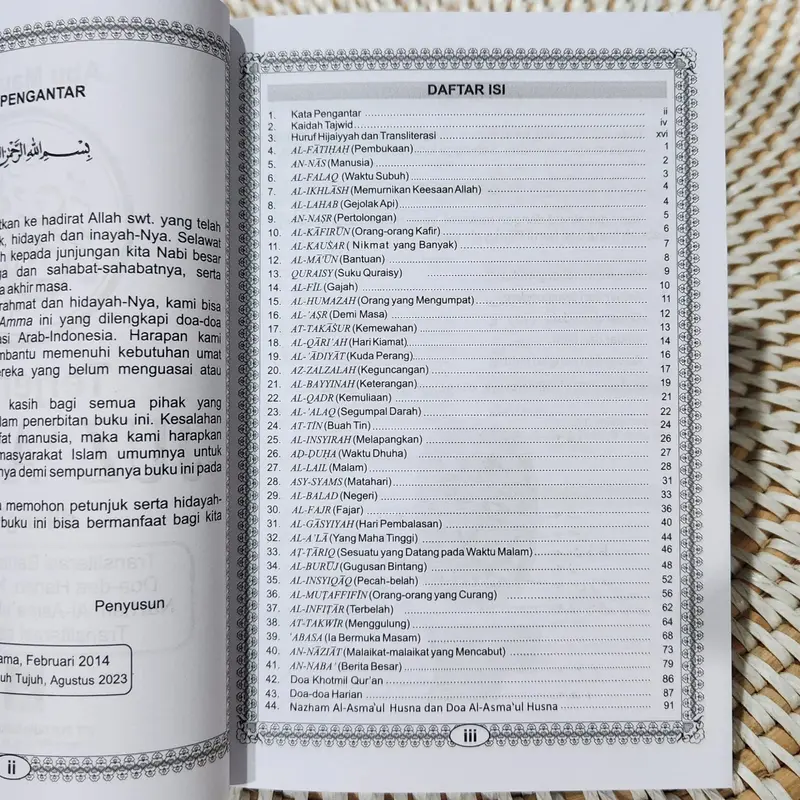 PENGANTAR
بِسْمِ اللهِ الرَّحْمٰنِ
tkan ke hadirat Allah swt. yang telah
k, hidayah dan inayah-Nya. Selawat
h kepada junjungan kita Nabi besar
ga dan sahabat-sahabatnya, serta
a akhir masa.
rahmat dan hidayah-Nya, kami bisa
Amma ini yang dilengkapi doa-doa
asi Arab-Indonesia. Harapan kami
mbantu memenuhi kebutuhan umat
ereka yang belum menguasai atau
kasih bagi semua pihak yang
lam penerbitan buku ini. Kesalahan
fat manusia, maka kami harapkan
masyarakat Islam umumnya untuk
nya demi sempurnanya buku ini pada
a memohon petunjuk serta hidayah-
buku ini bisa bermanfaat bagi kita
Penyusun
ama, Februari 2014
uh Tujuh, Agustus 2023
ii
DAFTAR ISI
1. Kata Pengantar ii
2. Kaidah Tajwid iv
3. Huruf Hijaiyyah dan Transliterasi xvi
4. AL-FĀTIḤAH (Pembukaan) 1
5. AN-NĀS (Manusia) 2
6. AL-FALAQ (Waktu Subuh) 3
7. AL-IKHLĀSH (Memurnikan Keesaan Allah) 4
8. AL-LAHAB (Gejolak Api) 4
9. AN-NAṢR (Pertolongan) 5
10. AL-KĀFIRŪN (Orang-orang Kafir) 6
11. AL-KAUŠAR (Nikmat yang Banyak) 7
12. AL-MĀ'ŪN (Bantuan) 8
13. QURAISY (Suku Quraisy) 9
14. AL-FĪL (Gajah) 10
15. AL-HUMAZAH (Orang yang Mengumpat) 11
16. AL-'AṢR (Demi Masa) 12
17. AT-TAKĀŠUR (Kemewahan) 13
18. AL-QĀRI'AH (Hari Kiamat) 14
19. AL-'ĀDIYĀT (Kuda Perang) 16
20. AZ-ZALZALAH (Keguncangan) 17
21. AL-BAYYINAH (Keterangan) 19
22. AL-QADR (Kemuliaan) 21
23. AL-'ALAQ (Segumpal Darah) 22
24. AT-TĪN (Buah Tin) 24
25. AL-INSYIRAH (Melapangkan) 26
26. AD-DUḤA (Waktu Dhuha) 27
27. AL-LAIL (Malam) 28
28. ASY-SYAMS (Matahari) 31
29. AL-BALAD (Negeri) 33
30. AL-FAJR (Fajar) 36
31. AL-GĀSYIYAH (Hari Pembalasan) 40
32. AL-A'LĀ (Yang Maha Tinggi) 44
33. AṬ-ṬĀRIQ (Sesuatu yang Datang pada Waktu Malam) 46
34. AL-BURŪJ (Gugusan Bintang) 48
35. AL-INSYIQĀQ (Pecah-belah) 52
36. AL-MUṬAFFIFĪN (Orang-orang yang Curang) 56
37. AL-INFIṬĀR (Terbelah) 62
38. AT-TAKWĪR (Menggulung) 64
39. 'ABASA (Ia Bermuka Masam) 68
40. AN-NĀZIĀT (Malaikat-malaikat yang Mencabut) 73
41. AN-NABA' (Berita Besar) 79
42. Doa Khotmil Qur'an 86
43. Doa-doa Harian 87
44. Nazham Al-Asma'ul Husna dan Doa Al-Asma'ul Husna 91
iii